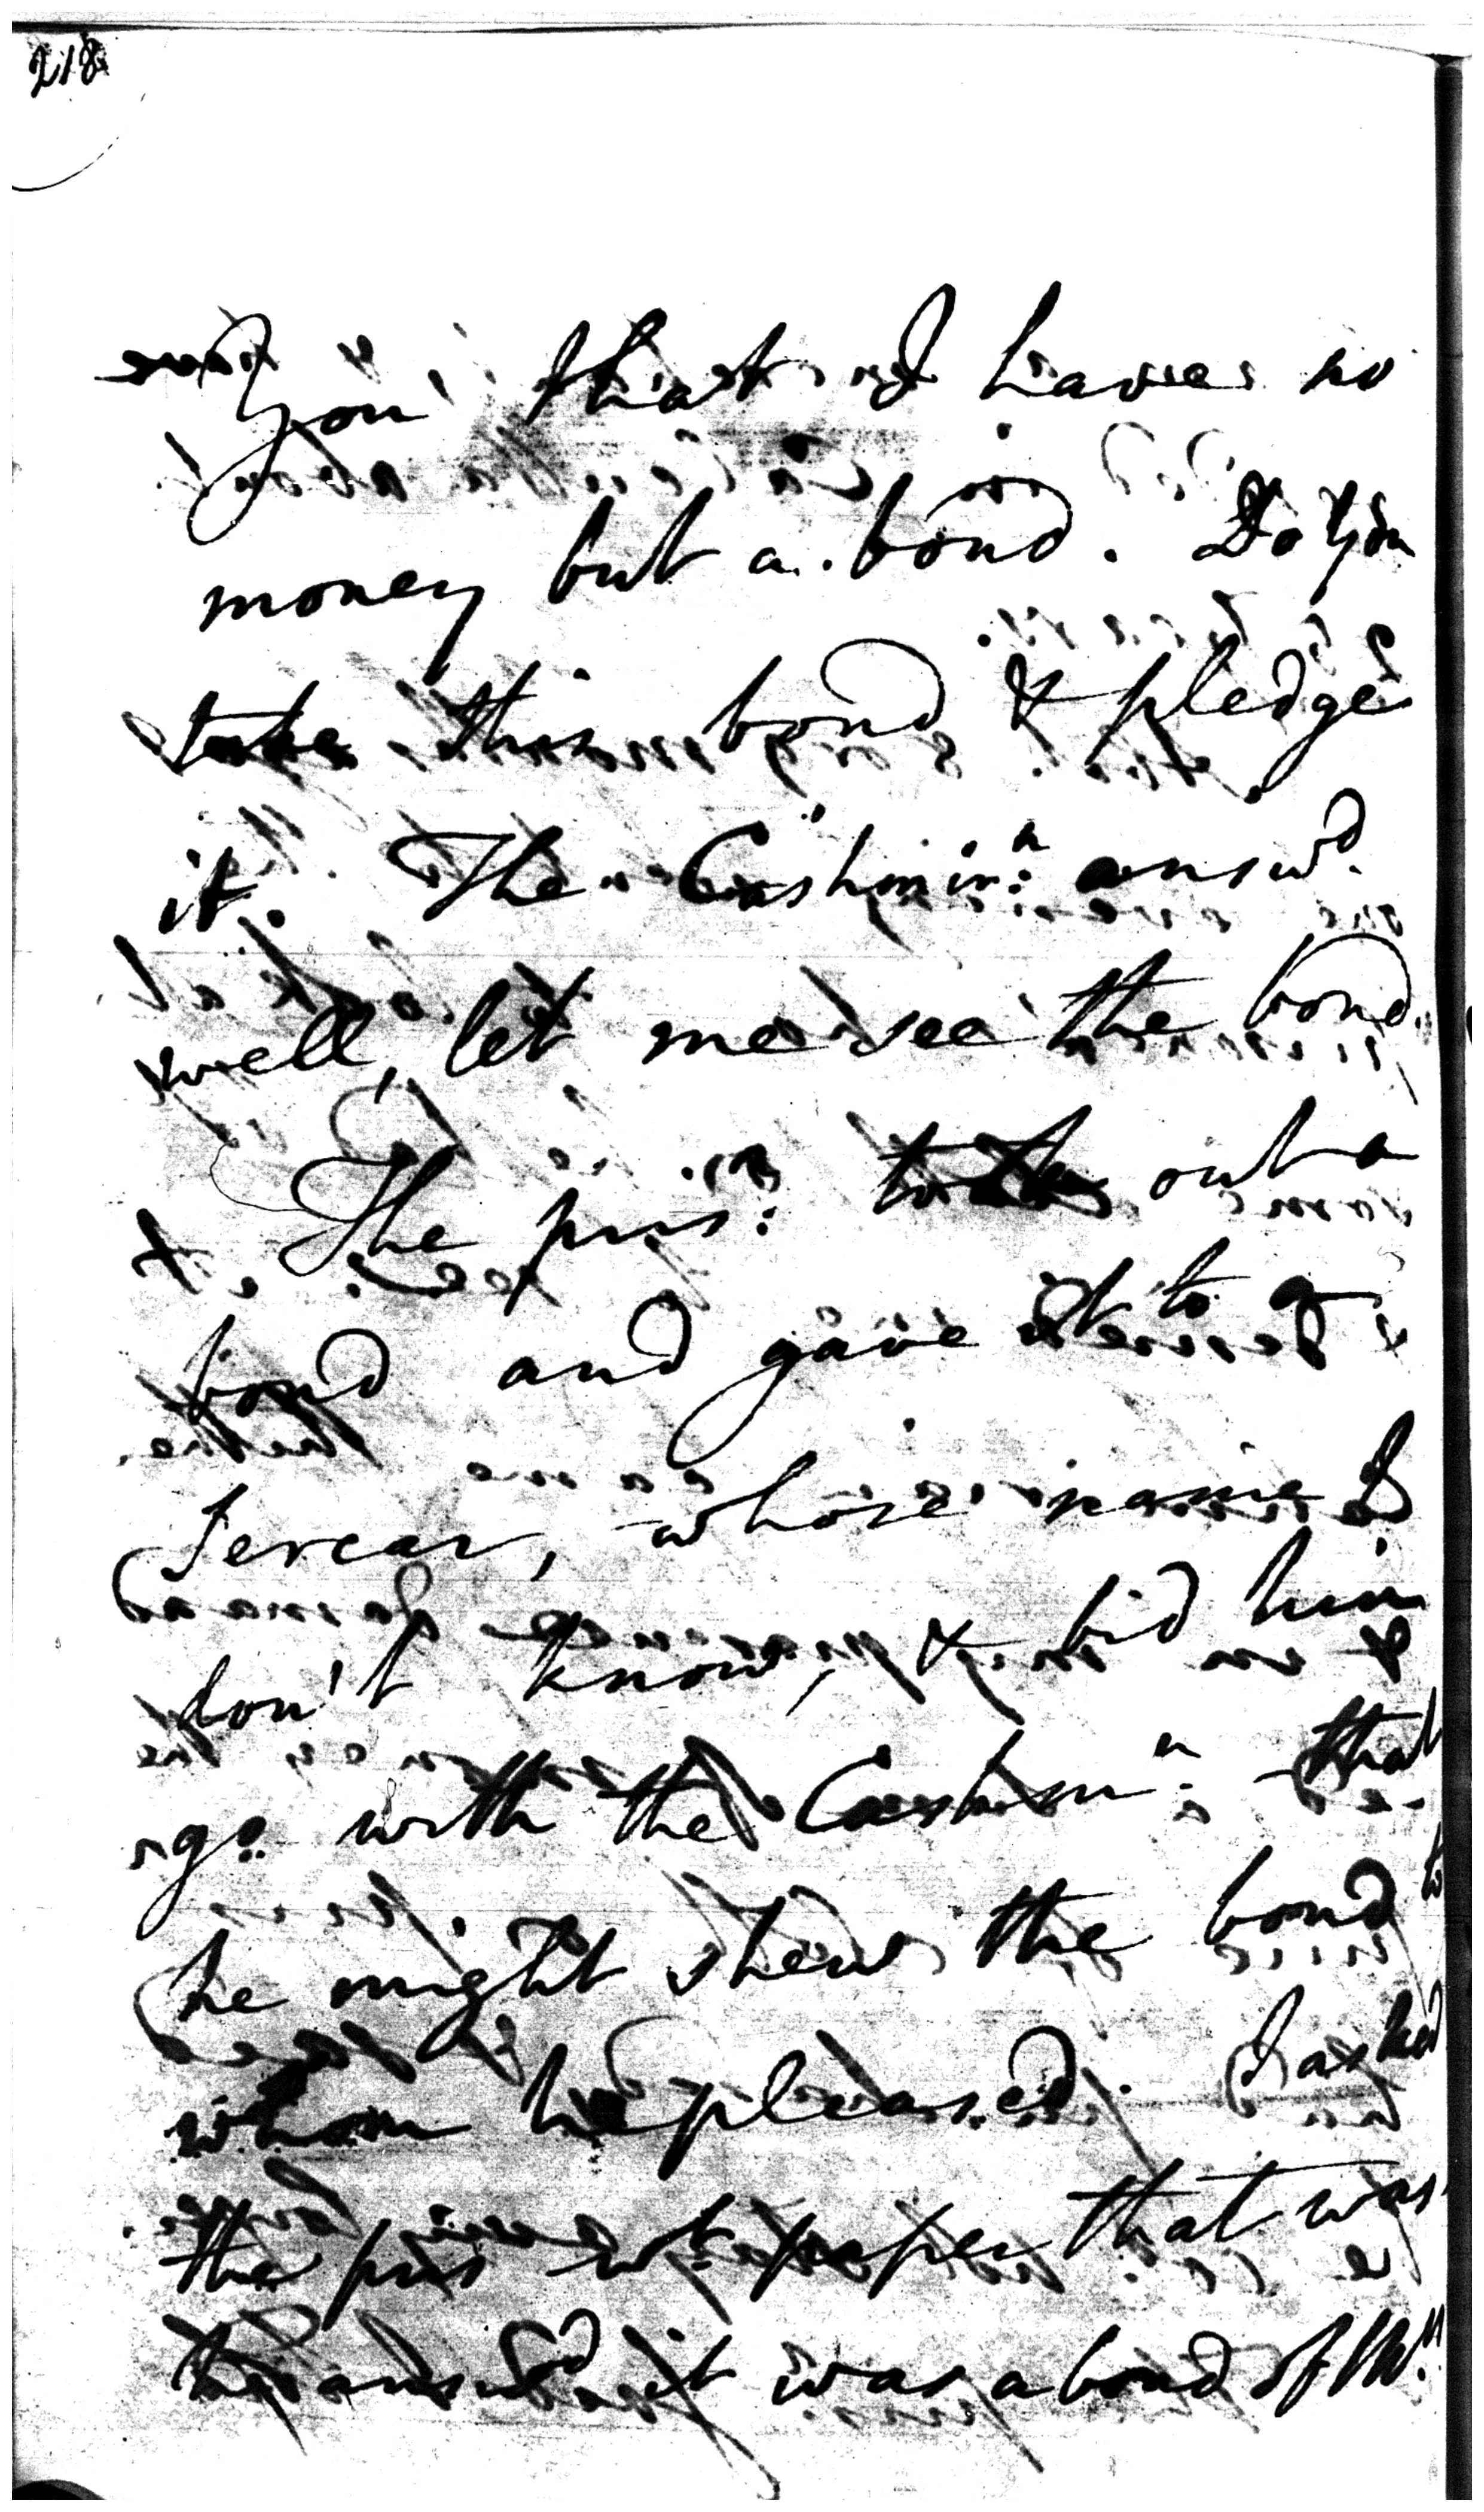 218
you, that I have no
money but a bond. Do you
take this bond & pledge
it. The Cashmirn: answd.
well, let me see the bond.
The prisr: took out a
bond and gave it to a
Sercar, whose name I
don't know, & bid him
go with the Cashmn: that
he might shew the bond to
whom he pleased. I asked
the pris wt paper that was
he answd it was a bond of Mr.